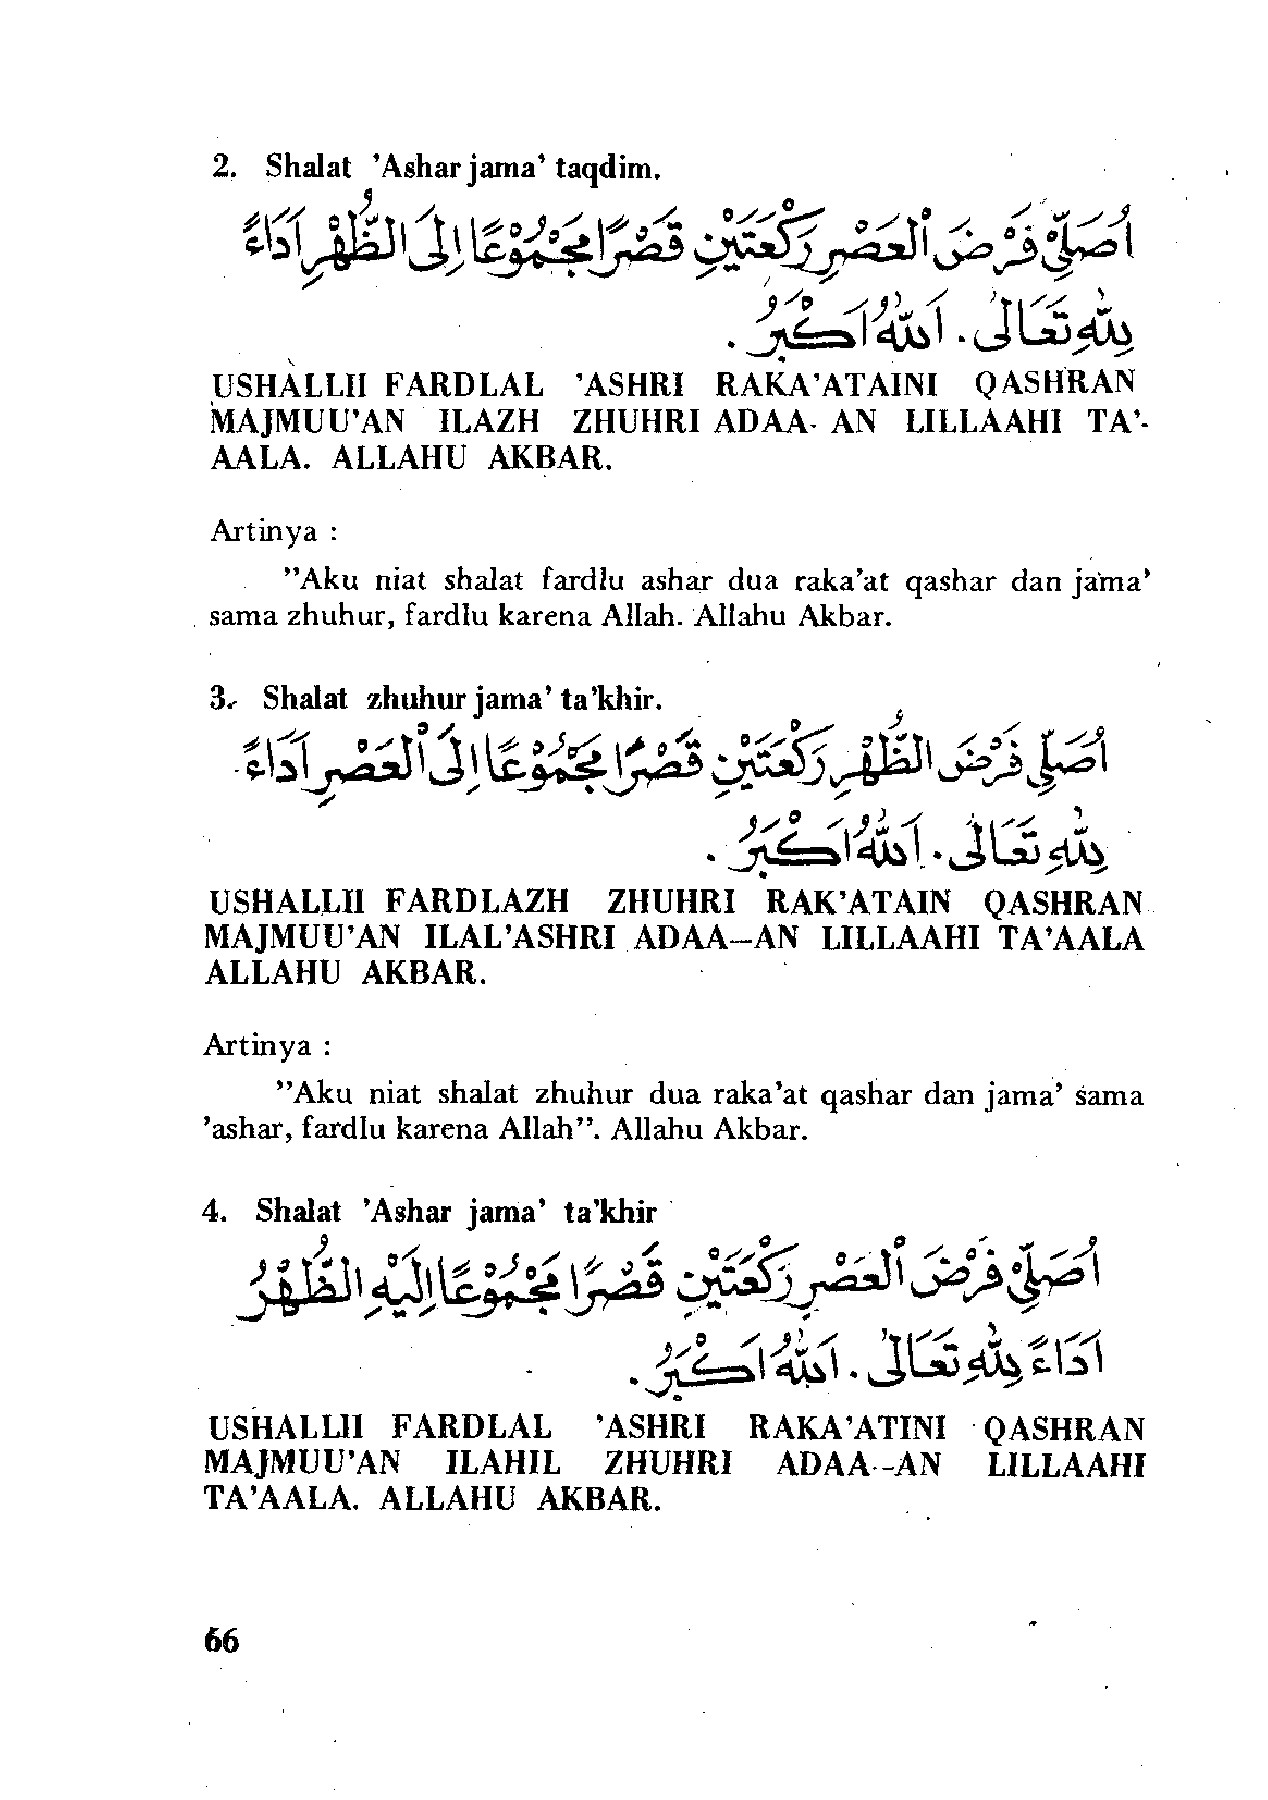 2. Shalat 'Ashar jama' taqdim.
اُصَلِّيْ فَرْضَ الْعَصْرِ رَكْعَتَيْنِ قَصْرًا مَجْمُوْعًا اِلَى الظُّهْرِ اَدَاءً
لِلّٰهِ تَعَالٰى. اَللّٰهُ اَكْبَرُ.
USHALLII FARDLAL 'ASHRI RAKA'ATAINI QASHRAN
MAJMUU'AN ILAZH ZHUHRI ADAA- AN LILLAAHI TA'-
AALA. ALLAHU AKBAR.
Artinya :
"Aku niat shalat fardlu ashar dua raka'at qashar dan jama'
sama zhuhur, fardlu karena Allah. Allahu Akbar.
3. Shalat zhuhur jama' ta'khir.
اُصَلِّى فَرْضَ الظُّهْرِ رَكْعَتَيْنِ قَصْرًا مَجْمُوْعًا اِلَى الْعَصْرِ اَدَاءً
لِلّٰهِ تَعَالٰى. اَللّٰهُ اَكْبَرُ.
USHALLII FARDLAZH ZHUHRI RAK'ATAIN QASHRAN
MAJMUU'AN ILAL'ASHRI ADAA–AN LILLAAHI TA'AALA
ALLAHU AKBAR.
Artinya :
"Aku niat shalat zhuhur dua raka'at qashar dan jama' sama
'ashar, fardlu karena Allah". Allahu Akbar.
4. Shalat 'Ashar jama' ta'khir
اُصَلِّيْ فَرْضَ الْعَصْرِ رَكْعَتَيْنِ قَصْرًا مَجْمُوْعًا اِلَيْهِ الظُّهْرُ
اَدَاءً لِلّٰهِ تَعَالٰى. اَللّٰهُ اَكْبَرُ.
USHALLII FARDLAL 'ASHRI RAKA'ATINI QASHRAN
MAJMUU'AN ILAHIL ZHUHRI ADAA--AN LILLAAHI
TA'AALA. ALLAHU AKBAR.
66